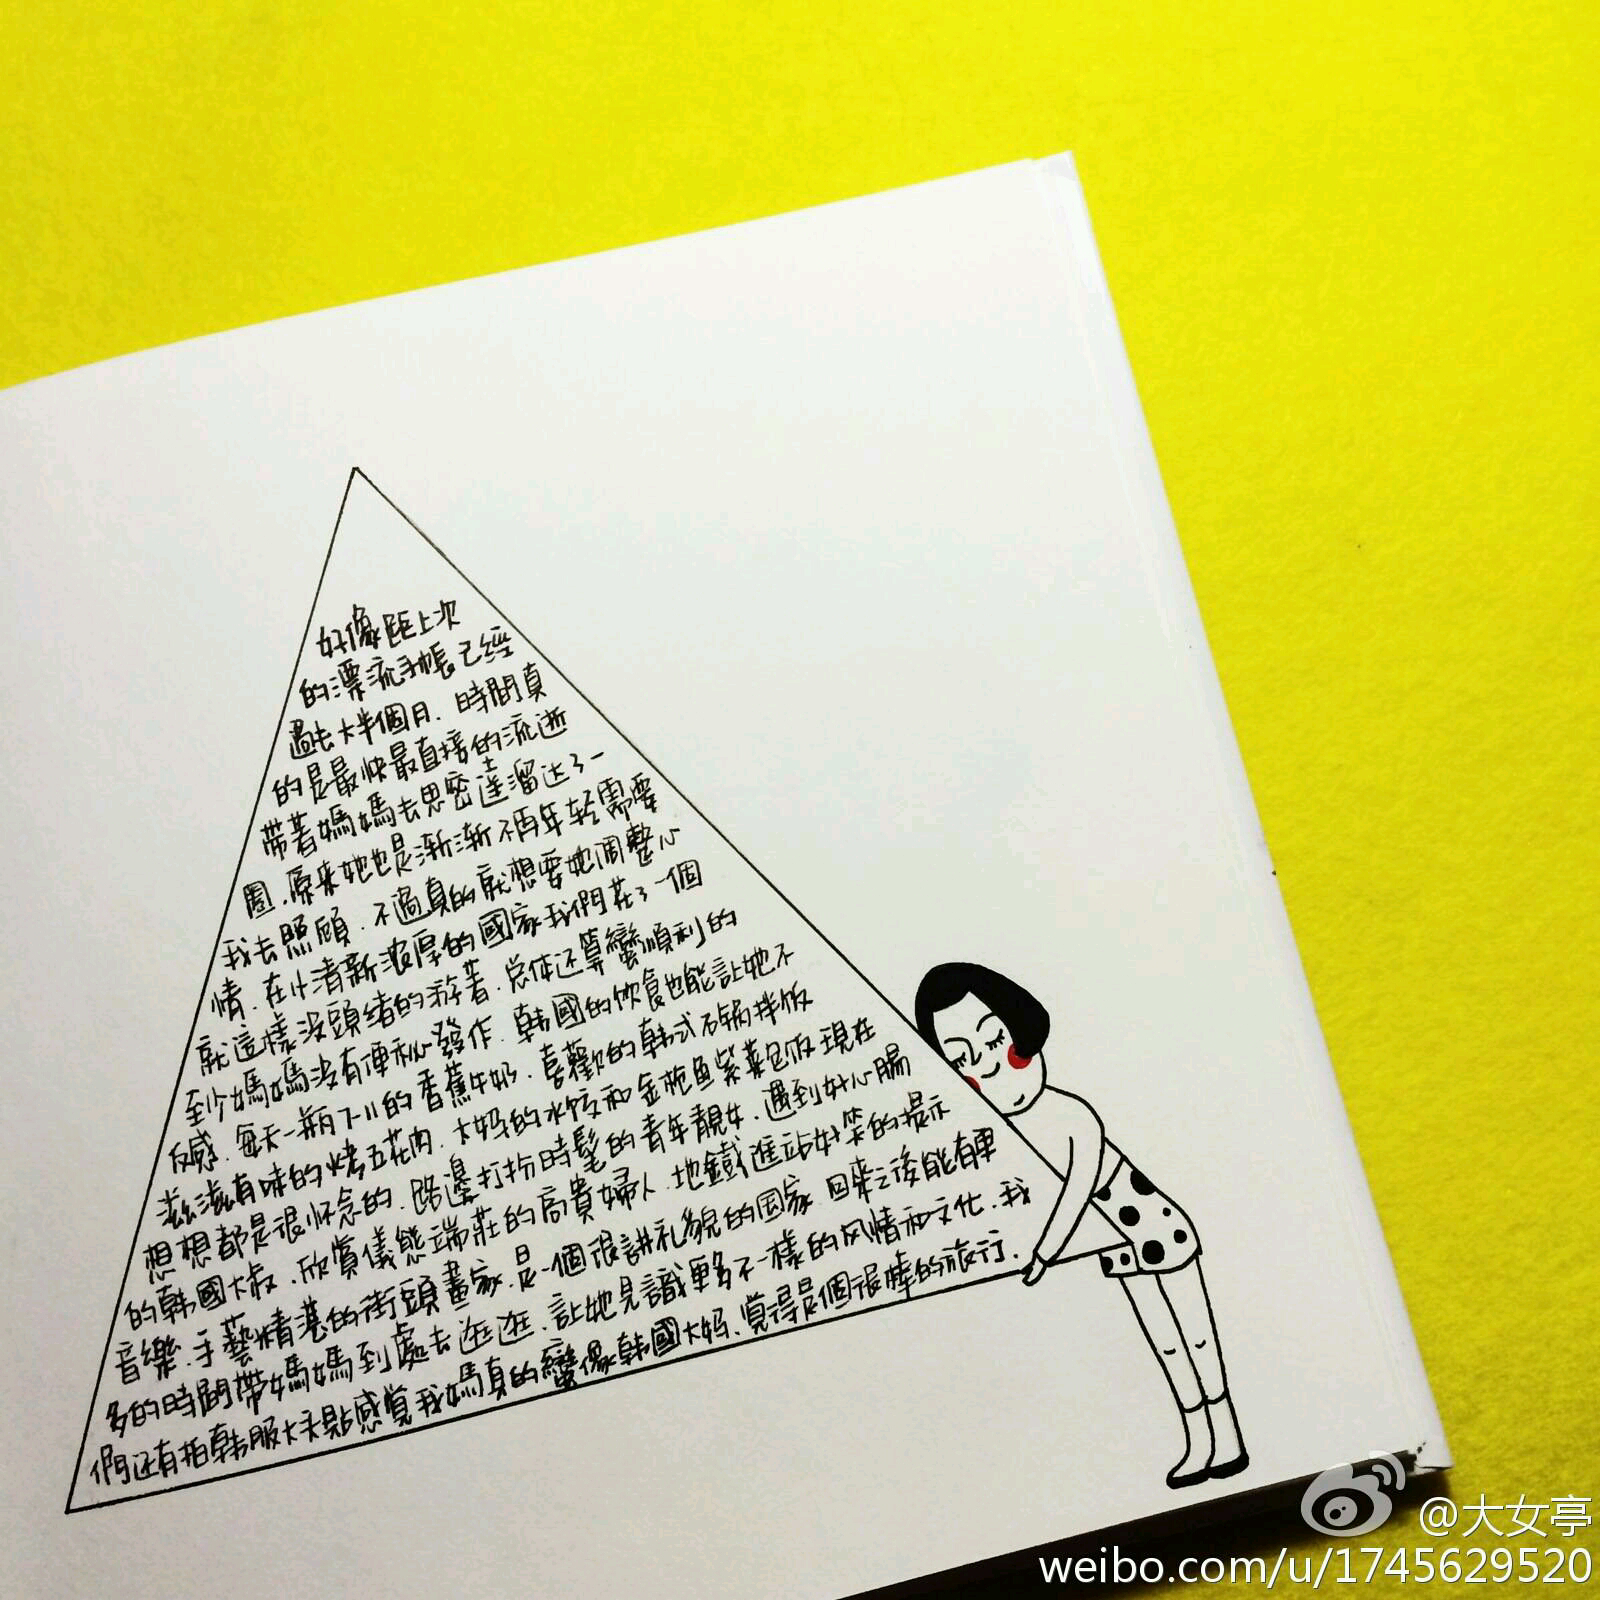 好像距上次
的漂流手帳已經
過去大半個月、時間真
的是最快最直接的流逝
帶着媽媽去思密达溜达了一
圈、原来她也是渐渐不再年轻需要
我去照顾、不過真的就想要她調整心
情、在小清新濃厚的國家我們花了一個
就這樣沒頭緒的游著、总体还算蠻順利的
至少媽媽沒有便秘發作、韩國的饮食也能讓她不
反感、每天一瓶7-11的香蕉牛奶、喜歡的韩式石锅拌饭
滋滋有味的烤五花肉、大妈的水饺和金枪鱼紫菜包饭現在
想想都是很怀念的、路邊打扮時髦的青年靓女、遇到好心腸
的韩國大叔、欣賞儀態端莊的高貴婦人、地鐵進站好笑的提示
音樂、手藝精湛的街頭畫家、是一個很講礼貌的国家、回来之後能有更
多的時間帶媽媽到處去逛逛、讓她見識更多不一樣的风情和文化、我
們还有拍韩服大头點感覚我媽真的蠻像韩國大妈、覚得是個很棒的旅行、
@大女亭
weibo.com/u/1745629520